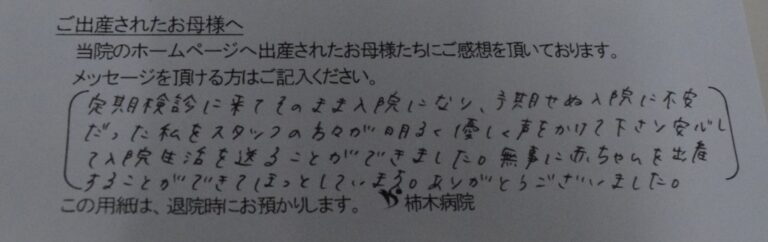 ご出産されたお母様へ
当院のホームページへ出産されたお母様たちにご感想を頂いております。
メッセージを頂ける方はご記入ください。
定期検診に来てそのまま入院になり、予期せぬ入院に不安
だった私をスタッフの方々が明るく優しく声をかけて下さり安心し
て入院生活を送ることができました。無事に赤ちゃんを出産
することができてほっとしています。ありがとうございました。
この用紙は、退院時にお預かりします。 柿木病院